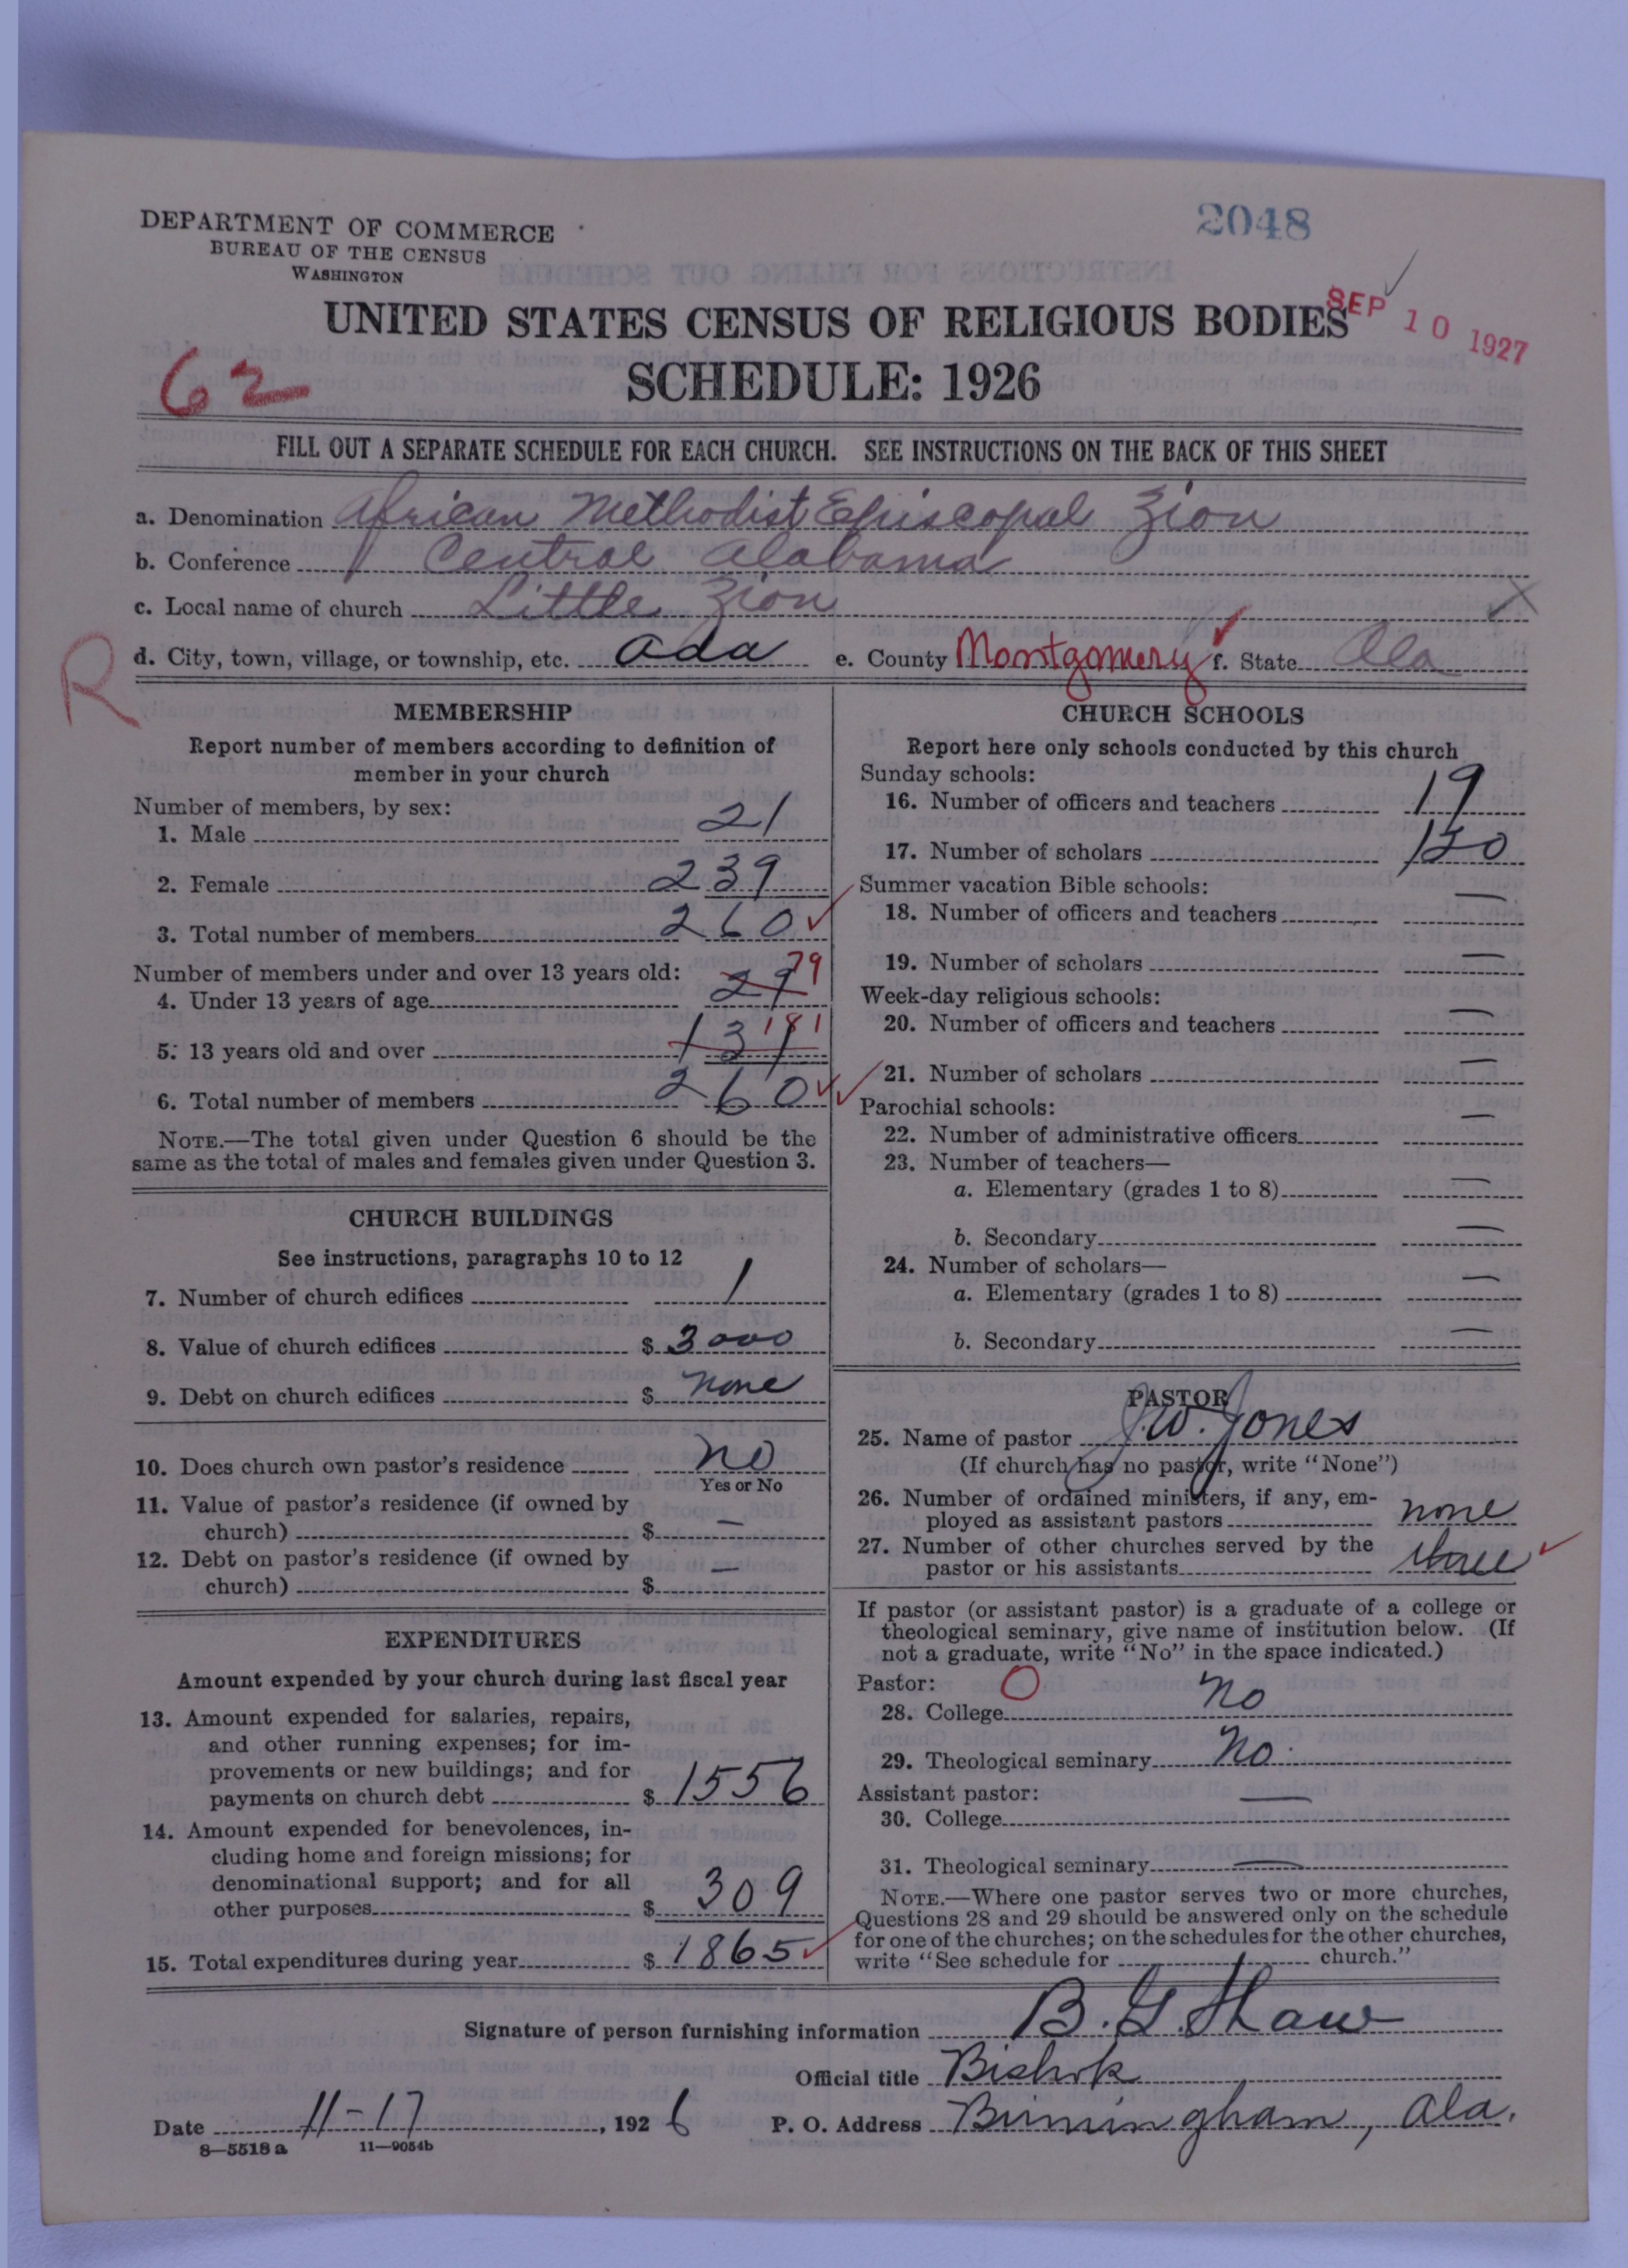 2048
DEPARTMENT OF COMMERCE
BUREAU OF THE CENSUS
WASHINGTON
UNITED STATES CENSUS OF RELIGIOUS BODIES
SEP 10 1927
62
SCHEDULE: 1926
FILL OUT A SEPARATE SCHEDULE FOR EACH CHURCH. SEE INSTRUCTIONS ON THE BACK OF THIS SHEET
a. Denomination African Methodist Episcopal Zion
b. Conference Central Alabama
c. Local name of church Little Zion
R
d. City, town, village, or township, etc. Ada e. County Montgomery f. State Ala
MEMBERSHIP
Report number of members according to definition of
member in your church
Number of members, by sex:
1. Male 21
2. Female 239
3. Total number of members 260
Number of members under and over 13 years old:
4. Under 13 years of age 29 79
5. 13 years old and over 131 181
6. Total number of members 260
NOTE.—The total given under Question 6 should be the
same as the total of males and females given under Question 3.
CHURCH BUILDINGS
See instructions, paragraphs 10 to 12
7. Number of church edifices 1
8. Value of church edifices $ 3000
9. Debt on church edifices $ none
10. Does church own pastor's residence no
Yes or No
11. Value of pastor's residence (if owned by
church) $ —
12. Debt on pastor's residence (if owned by
church) $ —
EXPENDITURES
Amount expended by your church during last fiscal year
13. Amount expended for salaries, repairs,
and other running expenses; for im-
provements or new buildings; and for
payments on church debt $ 1556
14. Amount expended for benevolences, in-
cluding home and foreign missions; for
denominational support; and for all
other purposes $ 309
15. Total expenditures during year $ 1865
CHURCH SCHOOLS
Report here only schools conducted by this church
Sunday schools:
16. Number of officers and teachers 19
17. Number of scholars 120
Summer vacation Bible schools:
18. Number of officers and teachers —
19. Number of scholars —
Week-day religious schools:
20. Number of officers and teachers —
21. Number of scholars —
Parochial schools:
22. Number of administrative officers —
23. Number of teachers—
a. Elementary (grades 1 to 8) —
b. Secondary —
24. Number of scholars—
a. Elementary (grades 1 to 8) —
b. Secondary —
PASTOR
25. Name of pastor J. W. Jones
(If church has no pastor, write "None")
26. Number of ordained ministers, if any, em-
ployed as assistant pastors none
27. Number of other churches served by the
pastor or his assistants
If pastor (or assistant pastor) is a graduate of a college or
theological seminary, give name of institution below. (If
not a graduate, write "No" in the space indicated.)
Pastor: O
28. College no
29. Theological seminary no.
Assistant pastor:
30. College —
31. Theological seminary —
NOTE.—Where one pastor serves two or more churches,
Questions 28 and 29 should be answered only on the schedule
for one of the churches; on the schedules for the other churches,
write "See schedule for church."
Signature of person furnishing information B. G. Shaw
Official title Bishop
Date 11-17, 1926 P. O. Address Birmingham, Ala.
8—5518 a 11—9054b